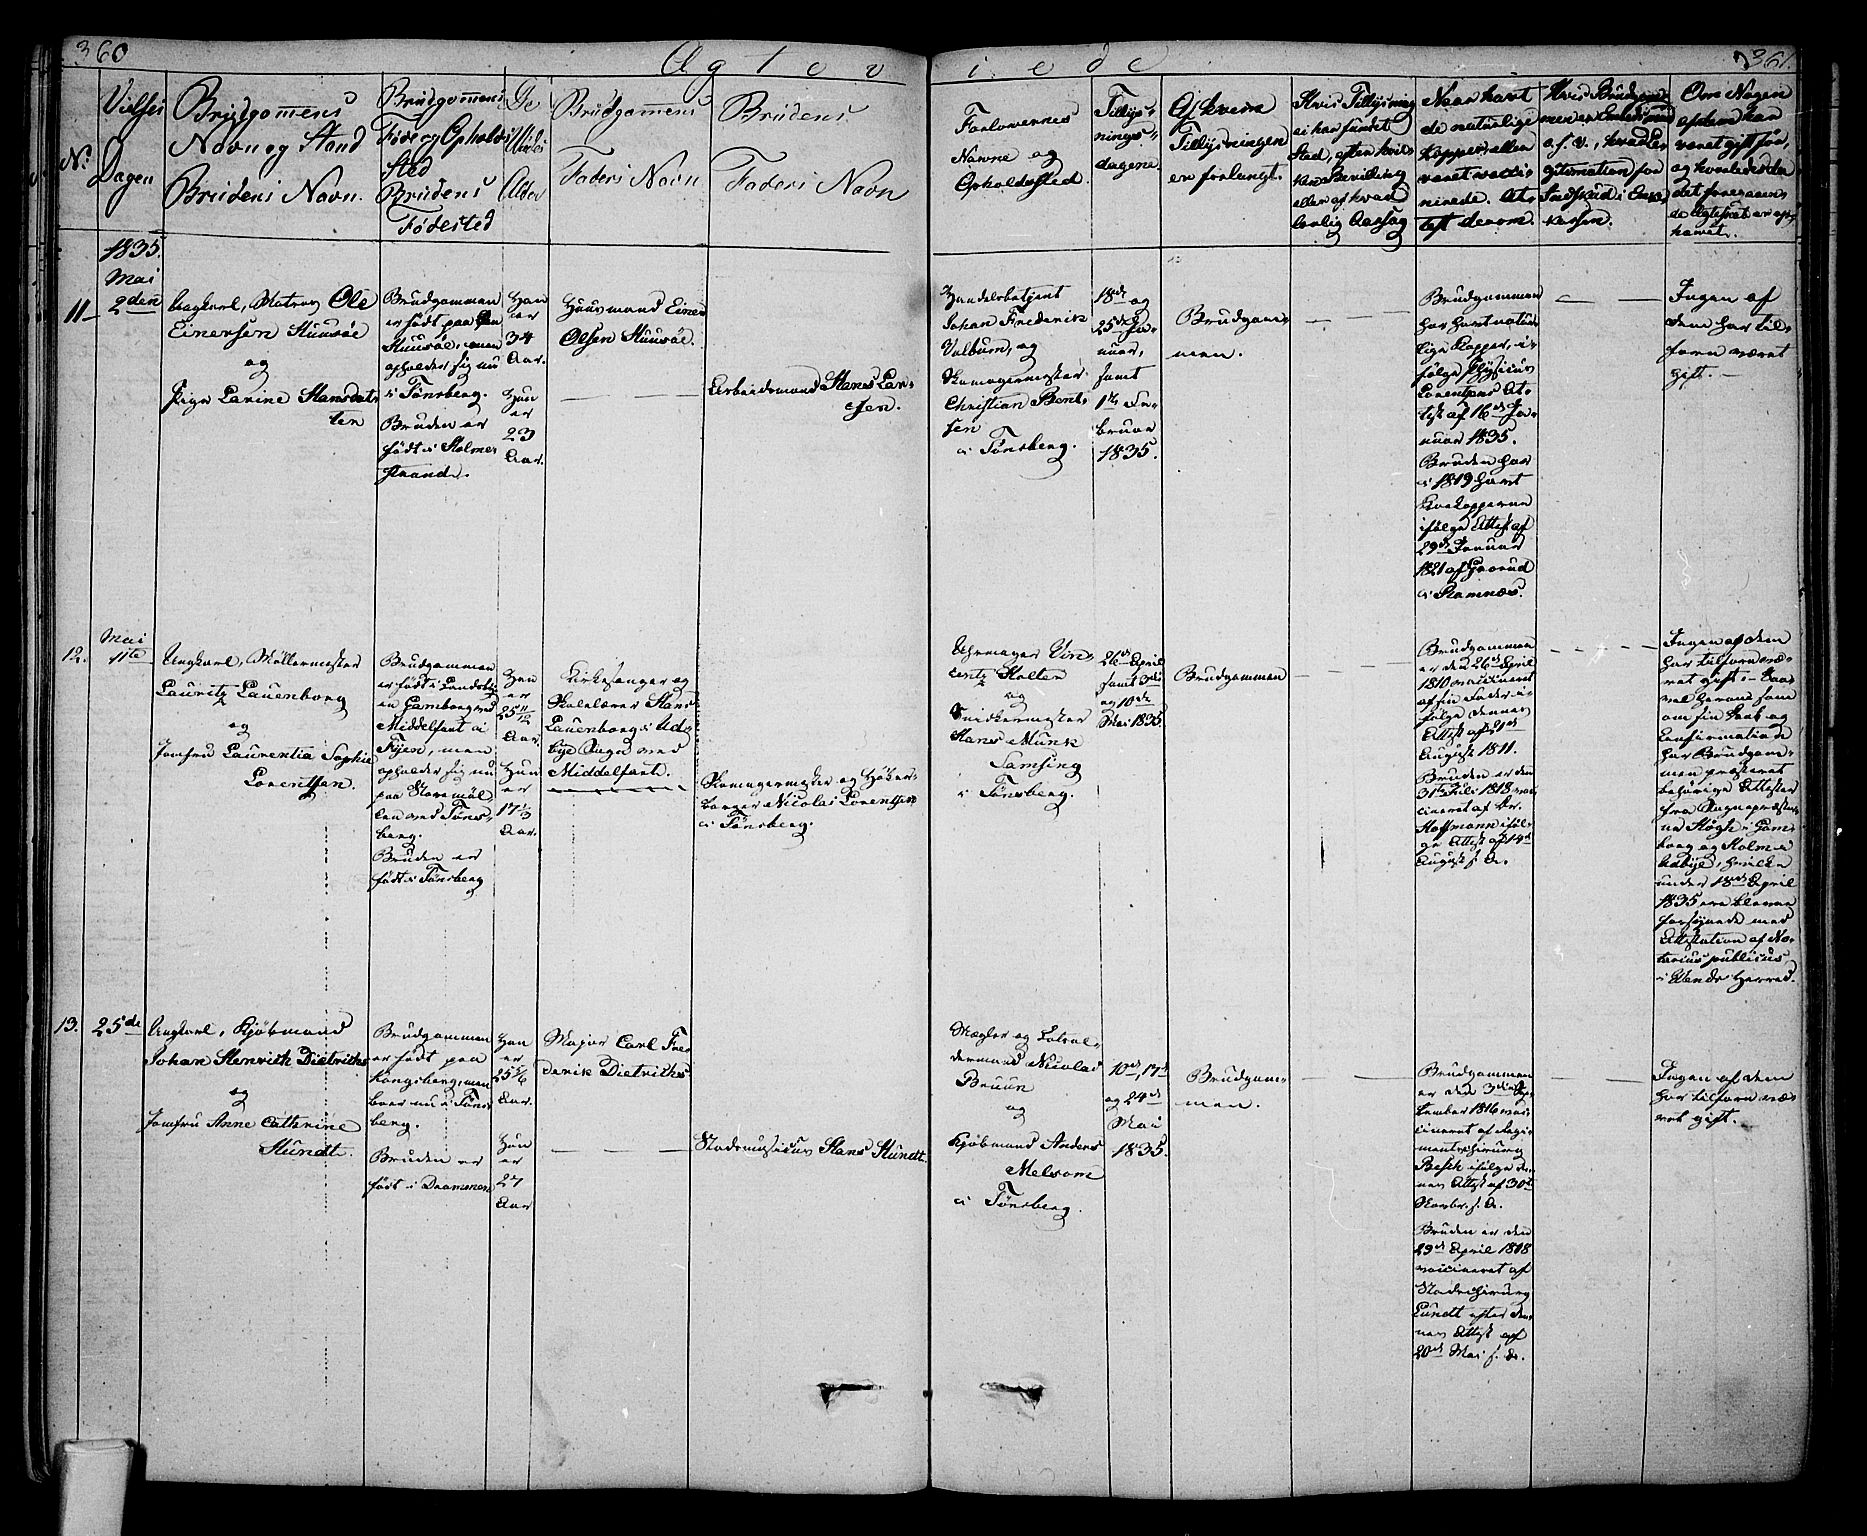 360
Ægtev
iede
361.
No.
Vielses
Dagen
Brudgommens
Navn og Stand
Brudens Navn.
Brudgommens
Føde og Opholds
Sted
Brudens
Fødested
De
Viedes
Alder
Brudgommens
Faders Navn.
Brudens
Faders Navn
Forlovernes
Navne og
Opholdssted.
Tillys-
nings-
dagene.
Af hvem
Tillysningen
er forlangt.
Hvis Tillysning
ei har fundet
Sted, efter hvil-
ken Bevilling
eller af hvad
lovlig Aarsag
Naar havt
de naturlige
Kopper, eller
været vacci-
nerede. At-
test derom.
Om Nogen
af dem har
været gift før,
og hvorledes da
det foregaaen-
de Ægteskab er op-
hævet.
1835.
Mai
11
2den
Ungkarl, Matros Ole
Einersen Huusøe
og
Pige Larine Hansdat-
ter
Brudgommen
er født paa
Huusøe, men
opholder sig nu
i Tønsberg.
Bruden er
født i Holme-
strand.
Han
er
34
Aar.
Hun
er
23
Aar.
Huusmand Einer
Olsen Huusøe.
Arbeidsmand Hans Lar-
sen.
Handelsbetjent
Johan Frederik
Valbum, og
Skomagermester
Christian Bent-
sen
i Tønsberg.
18de og
25de Ja-
nuar,
samt
1te Fe-
bruar
1835.
Brudgom-
men.
Brudgommen
har havt natur-
lige Kopper, i-
følge Physicus
Lorentzens At-
test af 16de Ja-
nuar 1835.
Bruden har
i 1819 havt
Kokopperne
ifølge Attest af
29de Januar
1821 af Grorud
i Ramnæs.
Ingen af
dem har til-
forn været
gift.
12.
Mai
11te
Ungkarl, Møllermester
Lauritz Lauenborg
og
Jomfru Laurentia Sophie
Lorentzen.
Brudgommen
er født i Landsby-
en Gamborg ved
Middelfart i
Fyen, men
opholder sig nu
paa Storemøl-
len ved Tøns-
berg.
Bruden er
født i Tønsberg
Han
er
25 11/12
Aar.
Hun
er
17 1/3
Aar.
Kirkesanger og
Skolelærer Hans
Lauenborg i Ud-
bye Sogn ved
Middelfart.
Skomagermester og Høker-
borger Nicolai Lorentzen
i Tønsberg.
Uhrmager Vin-
centz Holter
og
Snidkermester
Hans Munk
Samsing
i Tønsberg.
26de April
samt 3die
og 10de
Mai 1835.
Brudgommen
Brudgommen
er den 26de April
1810 vaccineret
af sin Fader i-
følge dennes
Attest af 21de
August 1811.
Bruden er den
31te Juli 1818 vac-
cineret af Dr.
Hoffmann iføl-
ge Attest af 14de
August s. A.
Ingen af dem
har tilforn væ-
ret gift.
om sin Daab og
Confirmation
har Brudgom-
men præsteret
behørige Attester
fra Sognepræster-
ne Høgh i Gam-
borg og Holm i
Udbye, hvilke
under 18de April
1835 ere blevne
forsynede med
Attestation af No-
tarius publicus
i Vends Herred.
13.
25de
Ungkarl, Kjøbmand
Johan Henrich Dietrichs
og
Jomfru Anne Cathrine
Hundt.
Brudgommen
er født paa
Kongsberg, men
boer nu i Tøns-
berg.
Bruden er
født i Drammen
Han
er
25 5/6
Aar.
Hun
er
27
Aar
Major Carl Fre-
derik Dietrichs.
Stadsmusicus Hans Hundt.
Mægler og Lotsol-
dermand Nicolai
Bruun
og
Kjøbmand Anders
Melsom
i Tønsberg.
10de, 17de
og 24de
Mai
1835.
Brudgom-
men.
Brudgommen
er den 3die Sep-
tember 1816 vac-
cineret af Regi-
mentschirurg
Besch ifølge den-
nes Attest af 30te
Novbr. s. A.
Bruden er den
29de April 1808
vaccineret af
Stadschirurg
Lundt efter den-
nes Attest af
20de Mai s. A.
Ingen af dem
har tilforn væ-
ret gift.